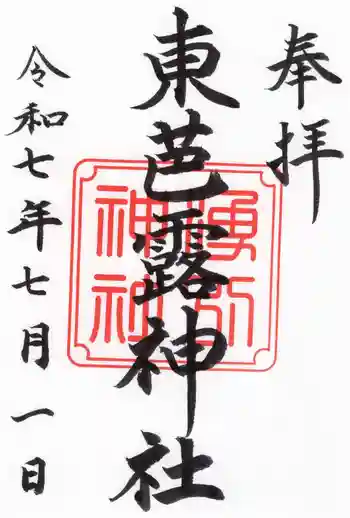 奉拝
東芭露神社
湧別神社
令和七年七月一日